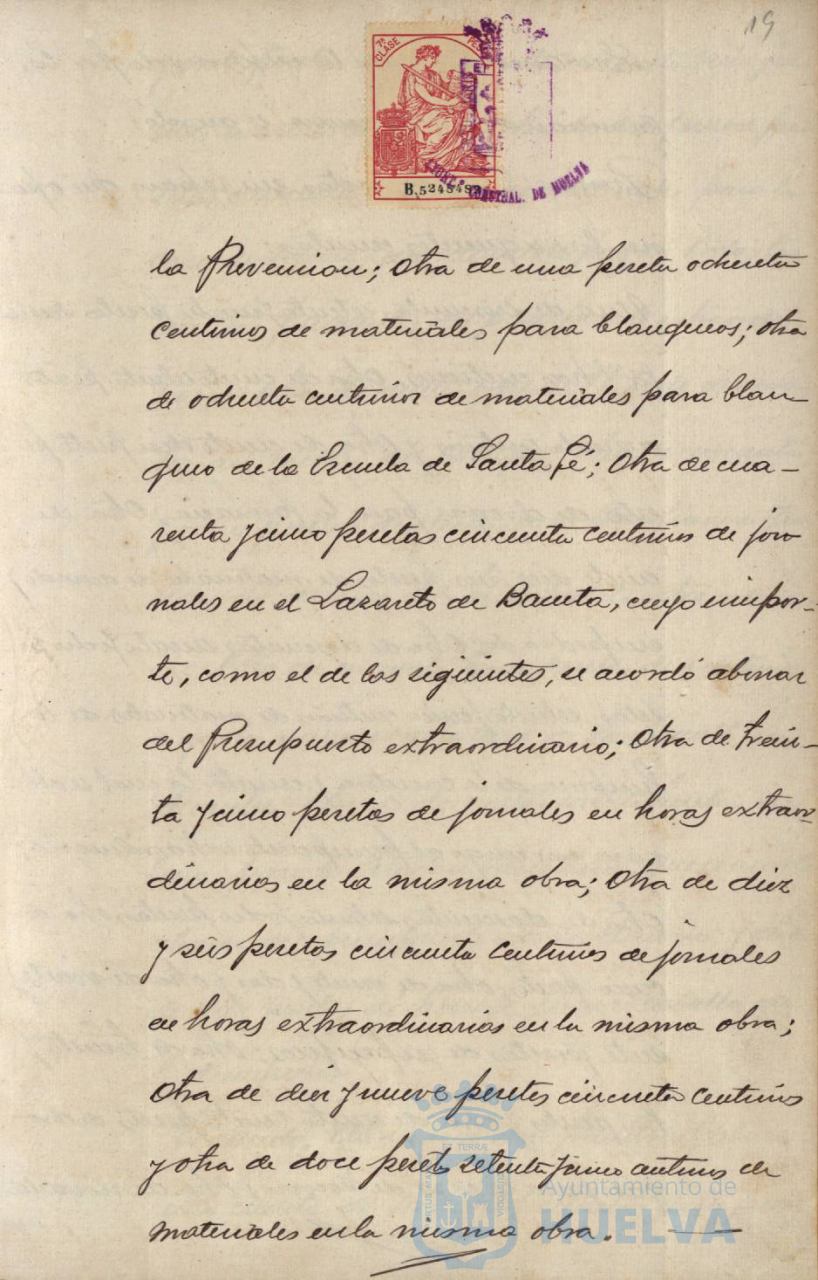 19
7ª CLASE
B.5248483
AYUNT.º CONSTNAL. DE HUELVA
la Prevencion; otra de una peseta ochenta
centimos de materiales para blanqueos; otra
de ochenta centimos de materiales para blan-
queo de la Escuela de Santa Fé; Otra de cua-
renta y cinco pesetas cincuenta centimos de jor-
nales en el Lazareto de Bacuta, cuyo impor-
te, como el de los siguientes, se acordó abonar
del Presupuesto extraordinario; Otra de trein-
ta y cinco pesetas de jornales en horas extraor-
dinarias en la misma obra; Otra de diez
y seis pesetas cincuenta centimos de jornales
en horas extraordinarias en la misma obra;
Otra de diez y nueve pesetas cincuenta centimos
y otra de doce pesetas setenta y cinco centimos de
materiales en la misma obra.
Ayuntamiento de
HUELVA